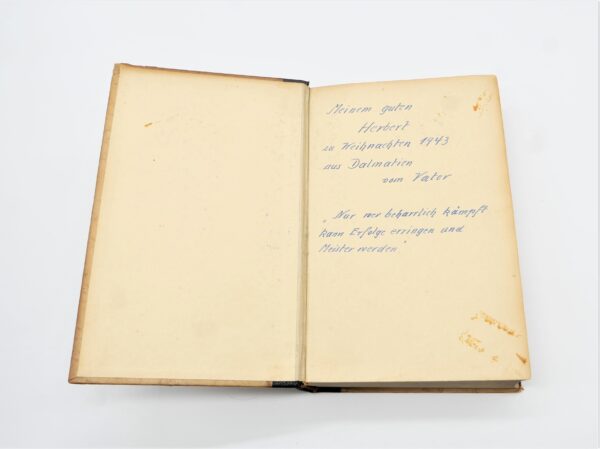 Meinem guten
Herbert
zu Weihnachten 1943
aus Dalmatien
vom Vater
„Nur wer beharrlich kämpft
kann Erfolge erringen und
Meister werden“